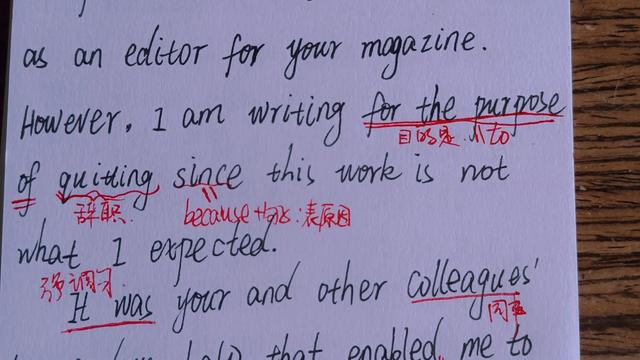 as an editor for your magazine.
However, I am writing for the purpose
目的是 to
of quitting since this work is not
辞职 because+句子:表原因
what I expected.
强调句
It was your and other colleagues'
同事
that enabled me to